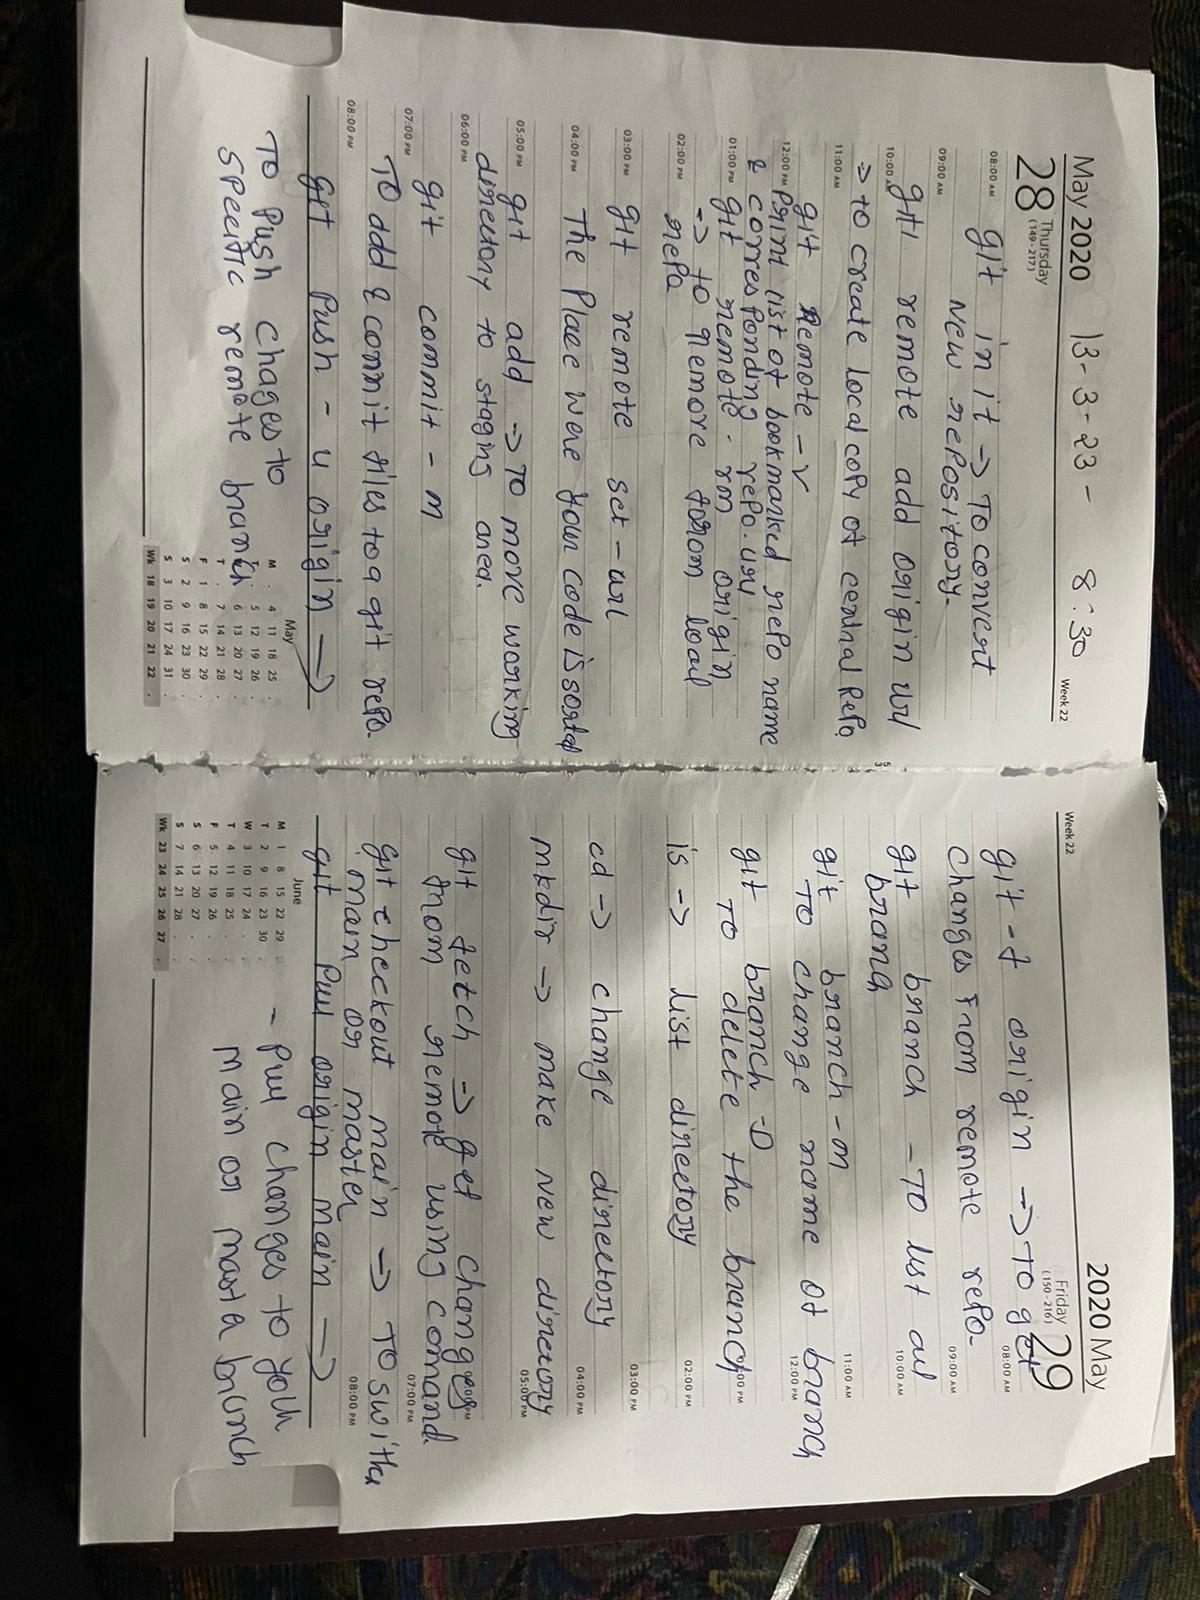 May 2020 13-3-23 - 8:30
Week 22
28 Thursday
(149-217)
08:00 AM git init → To convert
new repository.
09:00 AM
git remote add origin url
10:00 AM
⇒ to create local copy of central Repo.
11:00 AM
git Remote -v
12:00 PM Print list of bookmarked repo name
& corresponding repo.url
01:00 PM git remote. rm origin
→ to remore from loal
02:00 PM repo
03:00 PM git remote set-url
04:00 PM The Place were your code is
05:00 PM git add → To move working
directory to staging area.
06:00 PM
git commit - m
07:00 PM
To add & commit files to a git repo.
08:00 PM
git Push - u origin →
To Push chages to
specific remote branch
May
M . 4 11 18 25 .
T . 5 12 19 26 .
6 13 20 27 .
T . 7 14 21 28 .
F 1 8 15 22 29 .
S 2 9 16 23 30 .
S 3 10 17 24 31 .
Wk 18 19 20 21 22 .
2020 May
Week 22
Friday 29
(150-216)
git -f origin → To get
08:00 AM
changes From remote repo.
09:00 AM
git branch - To list all
10:00 AM
brang
11:00 AM
git branch - m
To change name of branch
12:00 PM
git branch -D
To delete the branch
02:00 PM
is → list directory
03:00 PM
cd → change directory
04:00 PM
mkdir → make new directory
05:00 PM
git fetch → get changes
from remote using comand.
07:00 PM
git checkout main → To
main or master
08:00 PM
git Pull origin main →
- Pull changes to
main or branch
June
M 1 8 15 22 29
T 2 9 16 23 30
W 3 10 17 24 .
T 4 11 18 25 .
F 5 12 19 26 .
S 6 13 20 27 .
S 7 14 21 28 .
Wk 23 24 25 26 27 .